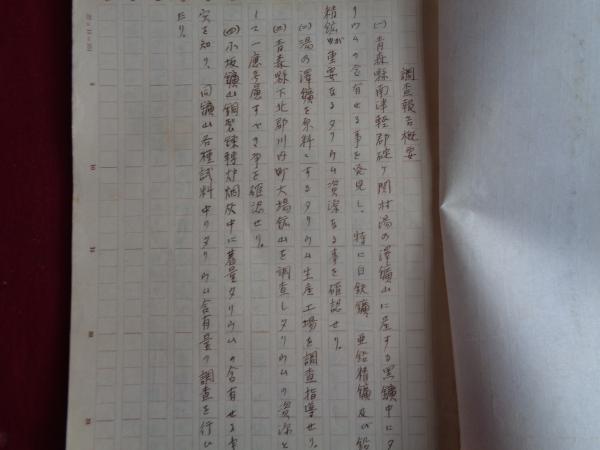 調査報告概要
(一) 青森縣南津軽郡碇ヶ関村湯の澤鑛山に産する黒鑛中にタ
リウムの含有せる事を発見し、特に白鉄鑛 亜鉛精鑛及び鉛
精鑛が重要なるタリウム資源なる事を確認せり。
(二) 湯の澤鑛を原料とするタリウム生産工場を調査指導せり。
(三) 青森縣下北郡川内町大揚鉱山を調査しタリウムの資源と
して一應考慮すべき事を確認せり。
(四) 小坂鑛山銅製錬轉炉烟灰中に著量タリウムの含有せる事
実を知り、同鑛山各種試料中のタリウム含有量の調査を行ひ
たり。